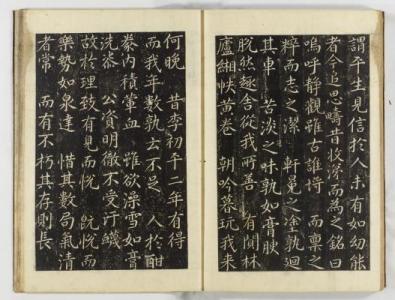 謂平生見信於人未有如幼能
者今追思疇昔收而為之銘曰
嗚呼靜觀雖古誰將 而稟之
粹而志之潔 軒冕之塗孰迴
其車 苦淡之味孰如膏腴
脫然趣舍從我所善 有閑林
廬緗帙黃卷 朝吟暮玩我來
何晚 昔李初平二年有得
而我年數孰去不足 人於酣
豢內積葷血 雖欲澡雪如膏
洗 公資明徹不受汙
故於理致有見而悅 既悅而
樂勢如泉達 惜其數局氣清
者常 而有不朽其存則長